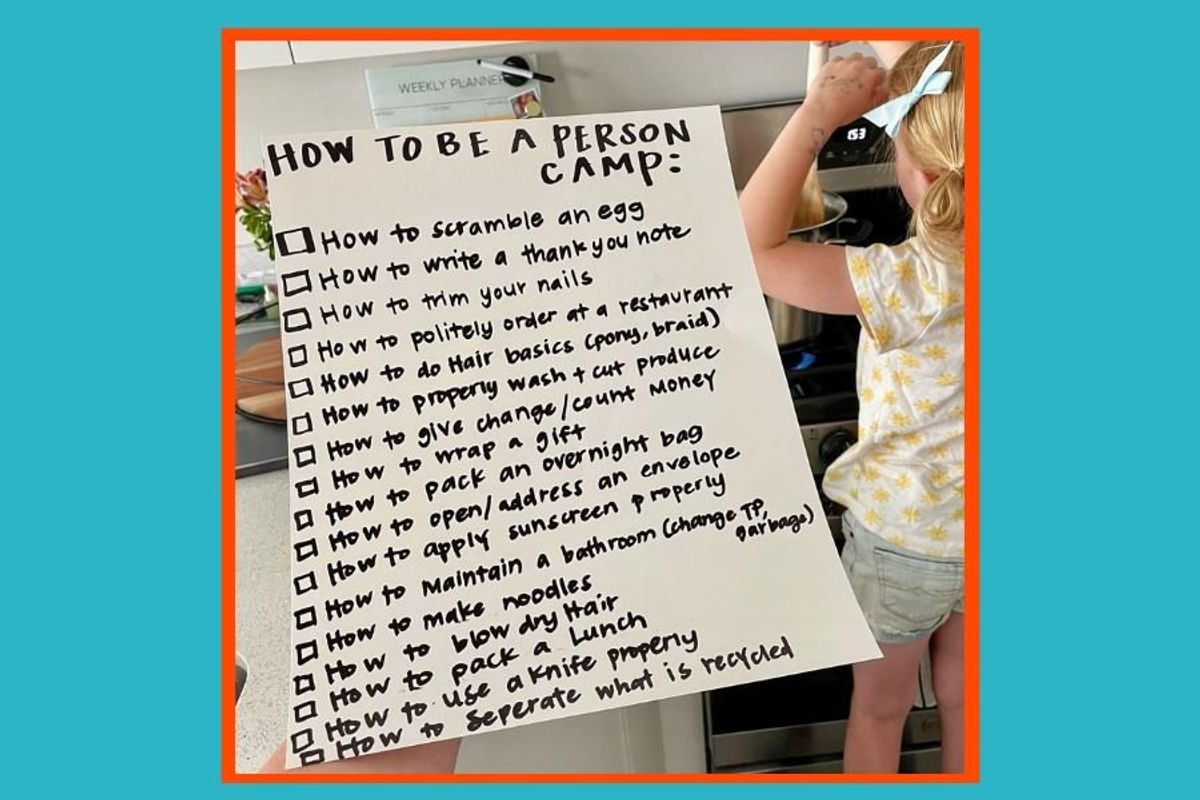 WEEKLY PLANNER
153
HOW TO BE A PERSON
CAMP:
How to scramble an egg
How to write a thank you note
How to trim your nails
How to politely order at a restaurant
How to do Hair basics (pony, braid)
How to properly wash + cut produce
How to give change/count Money
How to wrap a gift
How to pack an overnight bag
How to open/address an envelope
How to apply sunscreen properly
How to Maintain a bathroom (change TP,
garbage)
How to make noodles
How to blow dry Hair
How to pack a Lunch
How to Use a knife properly
How to Seperate what is recycled